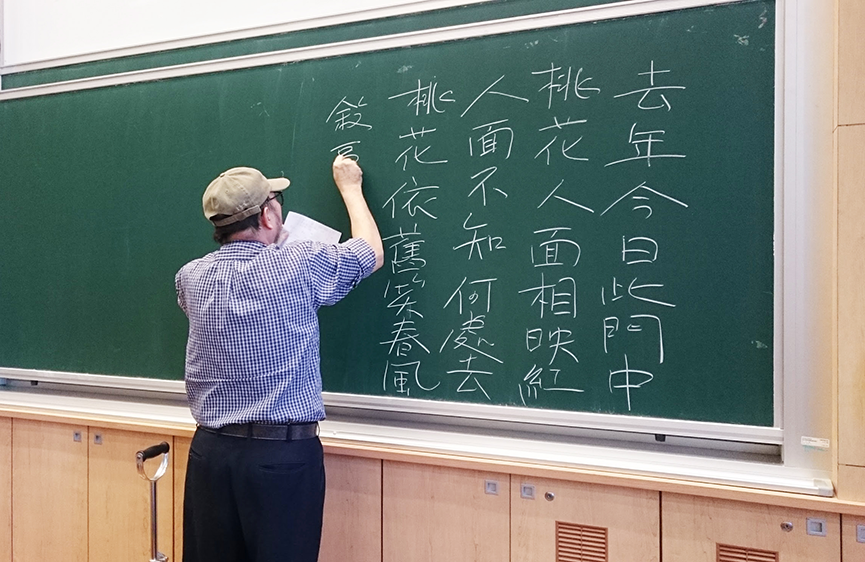 去年今日此門中
桃花人面相映紅
人面不知何處去
桃花依舊笑春風
敘